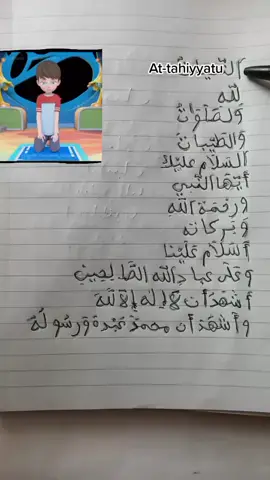 At-tahiyyatu
لله
وَالصَلَوَاتُ
وَالطَّيِّبَاتُ
السَّلَامُ عَلَيْكَ
أَيُّهَا النَّبِيُّ
وَرَحْمَةُ اللهِ
وَبَرَكَاتُهُ
أَسَّلَامُ عَلَيْنَا
وَعَلَى عِبَادِ اللهِ الصَّالِحِينَ
أَشْهَدُ أَنْ لَا إِلَهَ إِلَّا لله
وَأَشْهَدُ أَن مُحَمَّدً عَبْدُهُ وَرَسُولُهُ